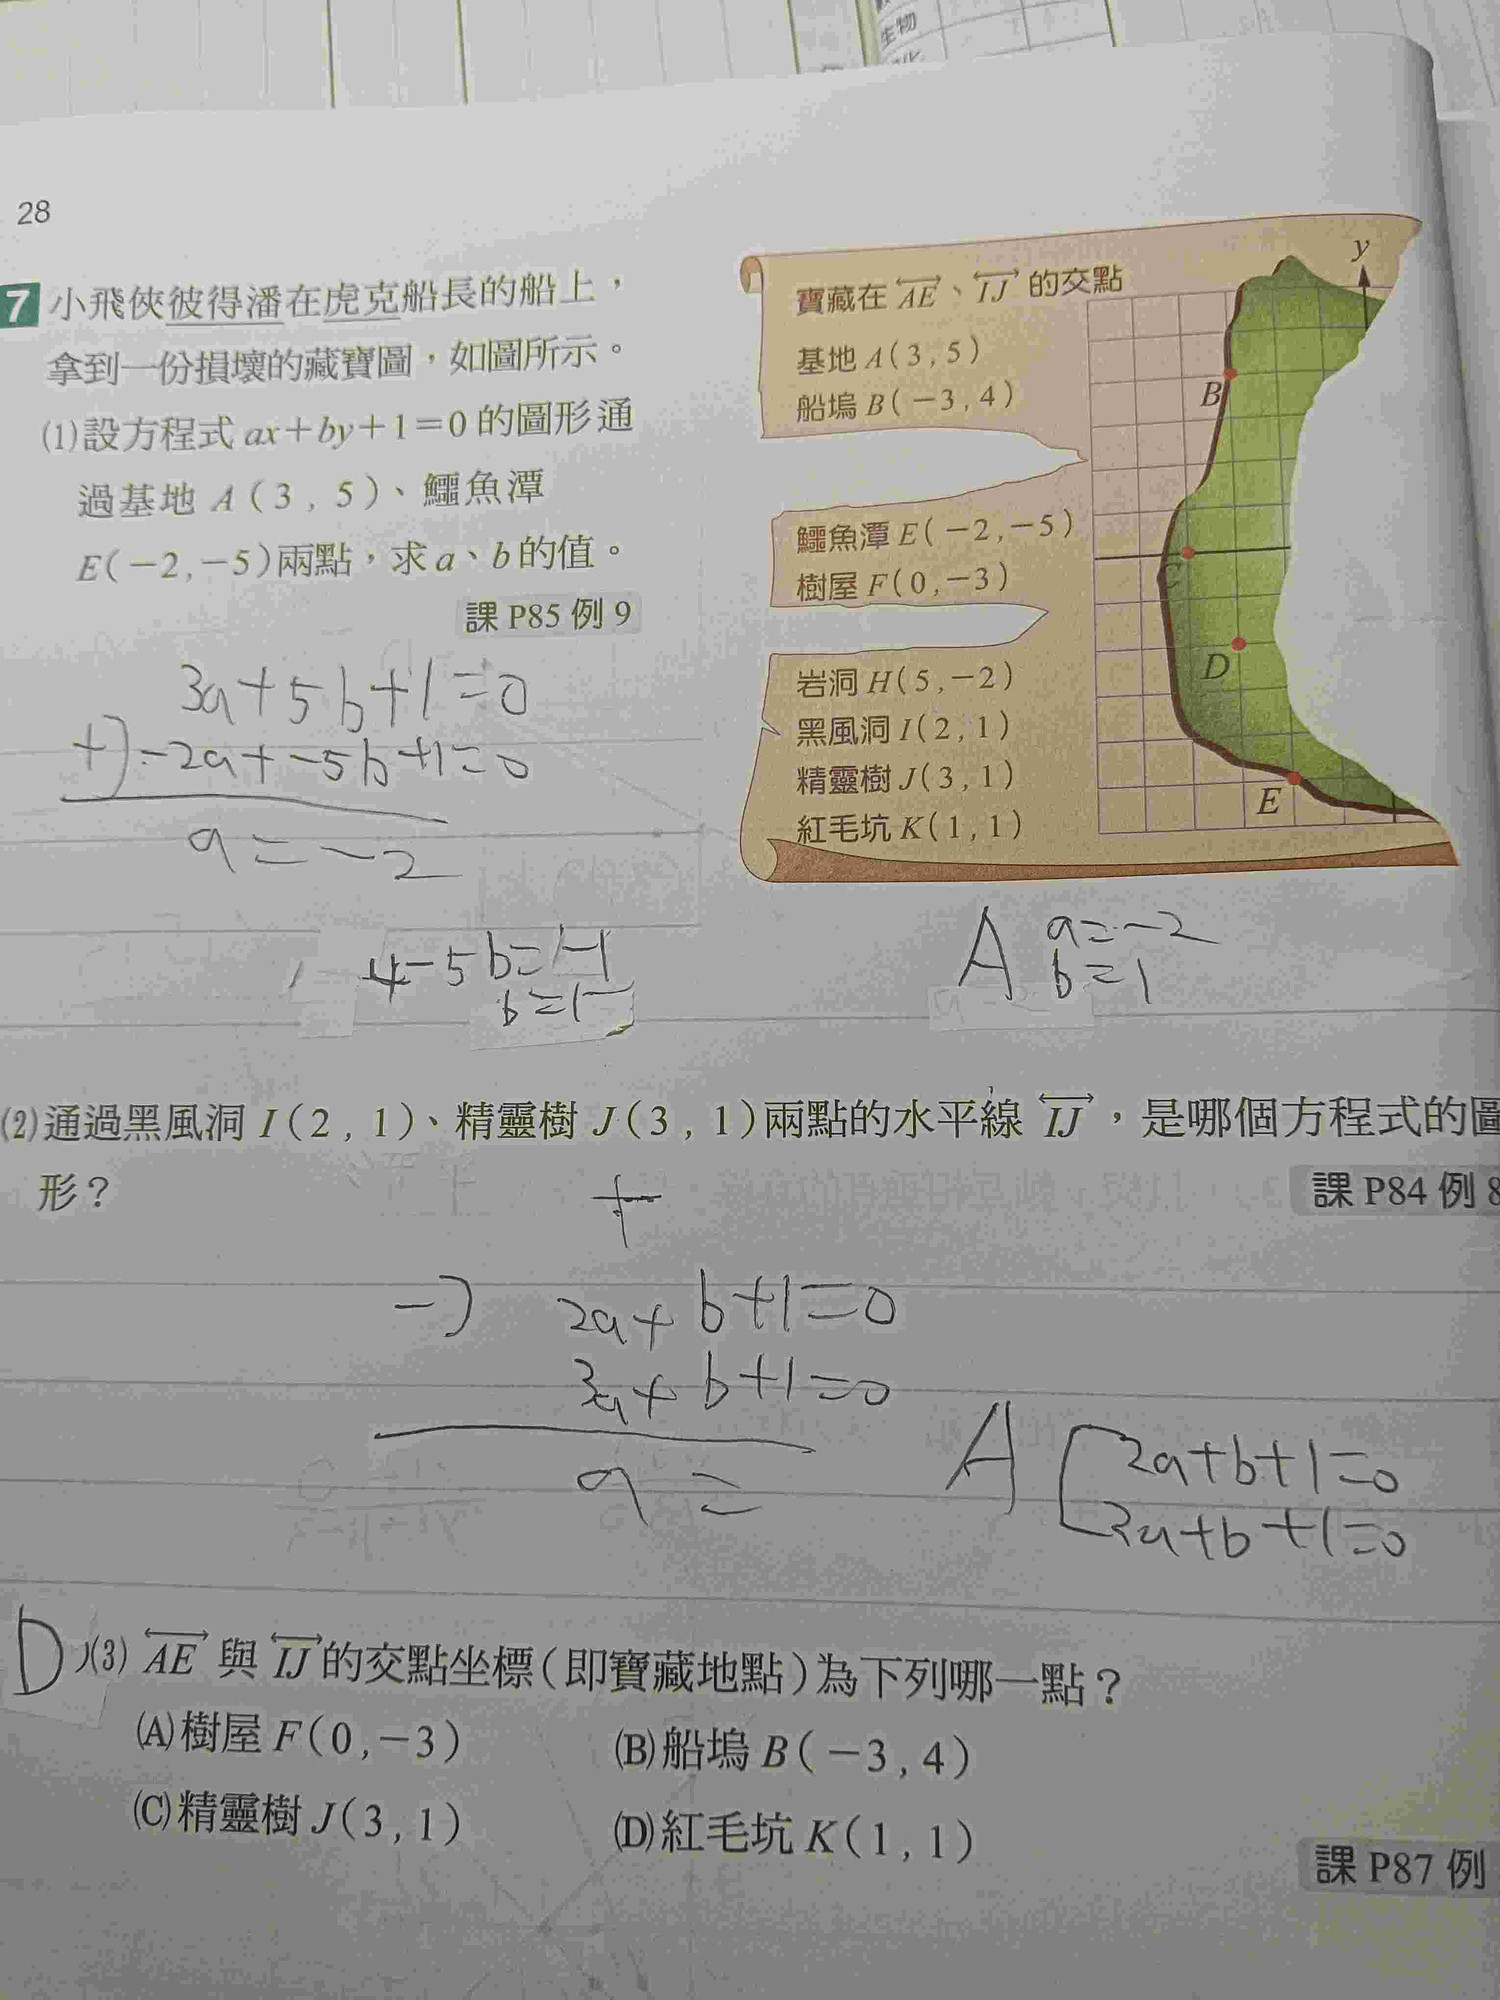 生物
28
7 小飛俠彼得潘在虎克船長的船上，
拿到一份損壞的藏寶圖，如圖所示。
⑴設方程式 ax+by+1=0 的圖形通
過基地 A(3,5)、鱷魚潭
E(-2,-5)兩點，求 a、b 的值。
課 P85 例 9
寶藏在 AE、IJ 的交點
基地 A(3,5)
船塢 B(-3,4)
鱷魚潭 E(-2,-5)
樹屋 F(0,-3)
岩洞 H(5,-2)
黑風洞 I(2,1)
精靈樹 J(3,1)
紅毛坑 K(1,1)
y
B
C
D
E
3a+5b+1=0
+)-2a+-5b+1=0
a=-2
4-5b=-1
b=1
A a=-2
b=1
⑵通過黑風洞 I(2,1)、精靈樹 J(3,1)兩點的水平線 IJ，是哪個方程式的圖
形？
課 P84 例 8
-) 2a+b+1=0
3a+b+1=0
a=
A 2a+b+1=0
3a+b+1=0
D )⑶ AE 與 IJ 的交點坐標(即寶藏地點)為下列哪一點？
(A)樹屋 F(0,-3) (B)船塢 B(-3,4)
(C)精靈樹 J(3,1) (D)紅毛坑 K(1,1)
課 P87 例